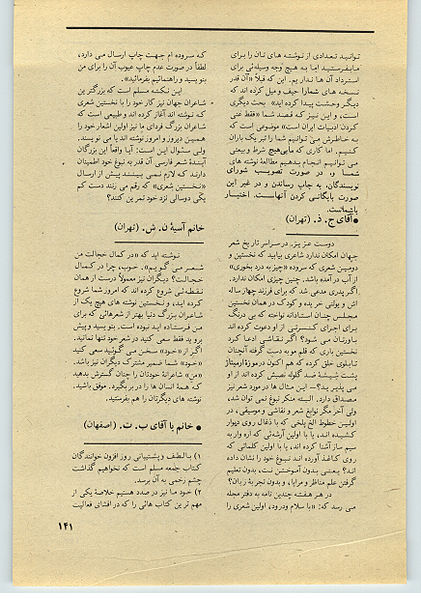 توانید تعدادی از نوشته های تان را برای
ما بفرستید اما به هیچ وجه وسیله‌ئی برای
استرداد آن ها نداریم. این که قبلاً «آن قدر
نسخه های شمارا حیف و میل کرده اند که
دیگر وحشت پیدا کرده اید» بحث دیگری
است، و این نیز که قصد شما «فقط غنی
کردن ادبیات ایران است» موضوعی است که
به خاطرش می توانیم شما را تبریک باران
کنیم. اما کاری که ما بی‌هیچ شرط و بیعتی
می توانیم انجام بدهیم مطالعهٔ نوشته های
شما و، در صورت تصویب شورای
نویسندگان، به چاپ رساندن و در غیر این
صورت بایگانی کردن آنهاست. اختیار
با شماست.
● آقای ج. ذ. (تهران)
دوست عزیز، در سراسر تاریخ شعر
جهان امکان ندارد شاعری بیابید که نخستین و
دومین شعری که سروده «چیز به درد بخوری»
از آب در آمده باشد. چنین چیزی امکان ندارد.
اگر پدری مدعی شد که برای فرزند چهار ساله
اش ویولنی خریده و کودک در همان نخستین
مجلس چنان استادانه نواخته که بی درنگ
برای اجرای کنسرتی از او دعوت کرده اند
باورتان می شود؟ اگر نقاشی ادعا کرد
نخستین باری که قلم مو به دست گرفته آنچنان
تابلوی خلق کرده که هم اکنون در موزهٔ ارمیتاژ
پشت شیشهٔ ضد گلوله نصبش کرده اند از او
می پذیرید؟— این مثال ها در مورد شعر نیز
مصداق دارد. البته منکر نبوغ نمی توان شد،
ولی آخر مگر نوابغ شعر و نقاشی و موسیقی، در
اولین خطوط الخ بلخی که با ذغال روی دیوار
کشیده اند، یا با اولین آرشه‌ئی که اره وار به
سیم ساز آشنا کرده اند، یا با اولین کلماتی که
روی کاغذ آورده اند نبوغ خود را نشان داده
اند؟ یعنی بدون آموختن نت، بدون تعلیم
گرفتن علم مناظر و مرایا، و بدون تجربهٔ زبان؟
در هر هفته چندین نامه به دفتر مجله
می رسد که: «با سلام و درود، اولین شعری را
که سروده ام جهت چاپ ارسال می دارد،
لطفاً در صورت عدم چاپ عیوب آن را برای من
بنویسید و راهنمائیم بفرمائید».
این نکته مسلم است که بزرگترین
شاعران جهان نیز کار خود را با نخستین شعری
که نوشته اند آغاز کرده اند و طبیعی است که
شاعران بزرگ فردای ما نیز اولین اشعار خود را
همین دیروز و امروز نوشته اند یا می نویسند.
ولی سئوال این است: آیا واقعاً این بزرگان
آیندهٔ شعر فارسی آن قدر به نبوغ خود اطمینان
دارند که لازم نمی بینند پیش از ارسال
«نخستین شعری» که رقم می زنند دست کم
یکی دوسالی نزد خود تمرین کنند؟
خانم آسیهٔ ن. ش. (تهران)
نوشته اید که «در کمال خجالت من
شعر می گویم». خوب، چرا در کمال
خجالت؟ دیگران نیز معمولاً درست از همان
نقطه‌ئی شروع کرده اند که امروز شما شروع
کرده اید، و نخستین نوشته های هیچ یک از
شاعران بزرگ دنیا بهتر از شعرهائی که برای
من فرستاده اید نبوده است. بنویسید و پیش
بروید فقط سعی کنید در شعر خود تنها نمانید.
اگر از «خود» سخن می گوئید سعی کنید
«خود» شما ضمیر مشترک دیگران نیز باشد.
«من» شاعرانهٔ خودتان را چنان گسترش بدهید
که همهٔ انسان ها را در بر گیرد. موفق باشید.
نوشته های دیگرتان را هم بفرستید.
● خانم یا آقای ب. ت. (اصفهان)
۱) با لطف و پشتیبانی روز افزون خوانندگان
کتاب جمعه مسلم است که نخواهیم گذاشت
چشم زخمی به آن برسد.
۲) خود ما نیز در صدد هستیم خلاصهٔ یکی از
مهم ترین کتاب هائی را که در افشای فعالیت
۱۴۱